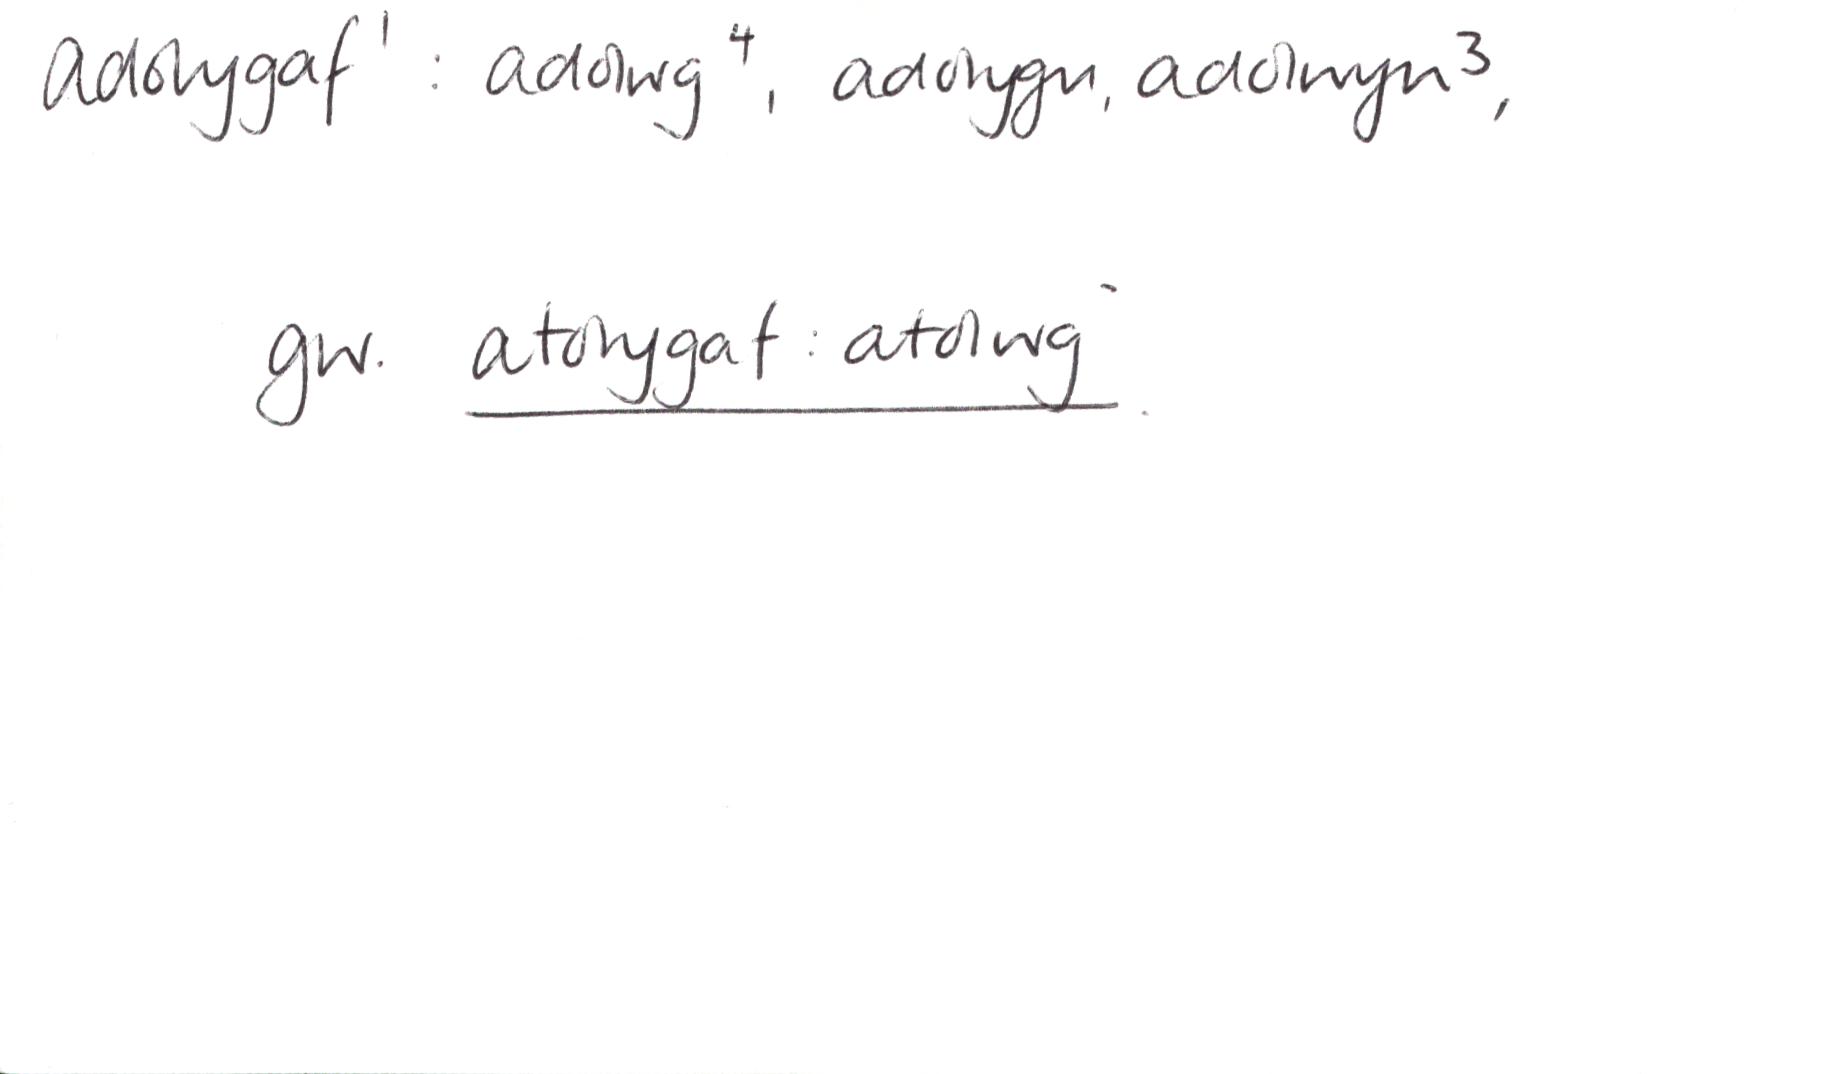 adolygaf¹ : adolwg⁴, adolygu, adolwyn³,
gw. atolygaf : atolwg.